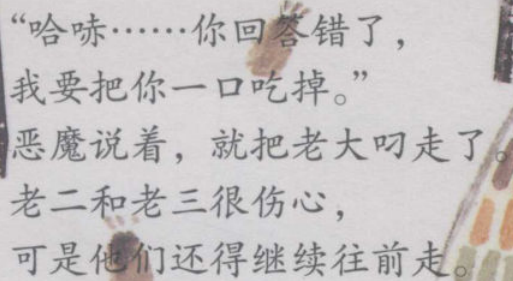 “哈哧……你回答错了，
我要把你一口吃掉。”
恶魔说着，就把老大叼走了。
老二和老三很伤心，
可是他们还得继续往前走。